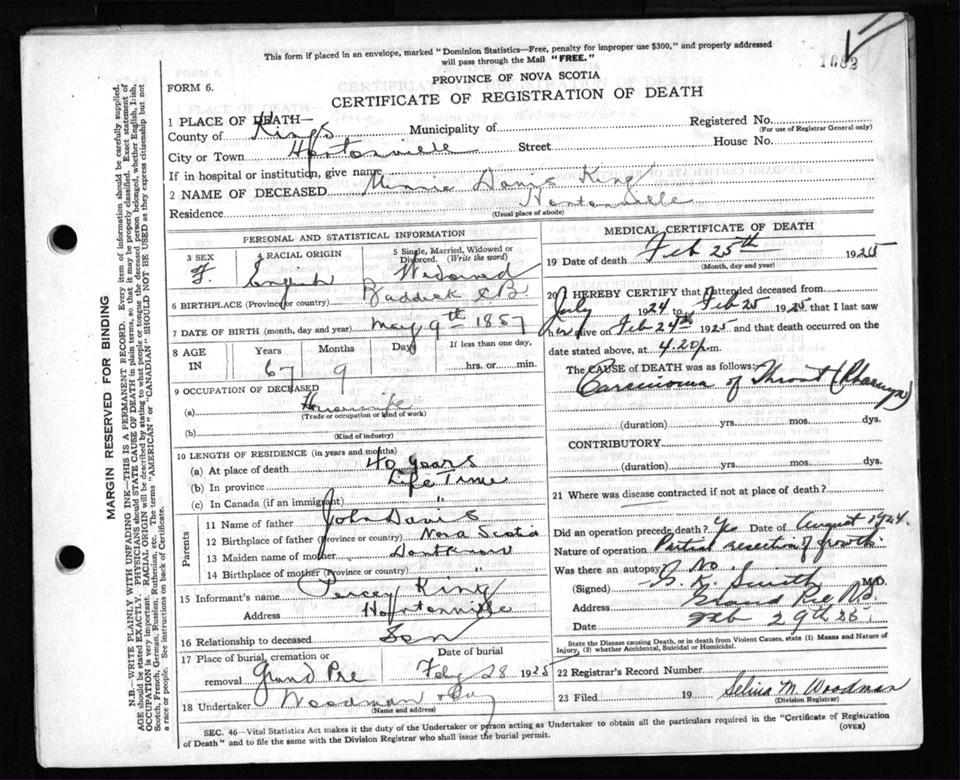 This form if placed in an envelope, marked "Dominion Statistics—Free, penalty for improper use $300," and properly addressed
will pass through the Mail "FREE."
1083
PROVINCE OF NOVA SCOTIA
FORM 6.
CERTIFICATE OF REGISTRATION OF DEATH
1 PLACE OF DEATH—
County of Kings Municipality of Registered No.
(For use of Registrar General only)
City or Town Hortonville Street House No.
If in hospital or institution, give name
2 NAME OF DECEASED Minnie Davis King
Residence Hortonville
(Usual place of abode)
PERSONAL AND STATISTICAL INFORMATION
3 SEX 4 RACIAL ORIGIN 5 Single, Married, Widowed or
Divorced. (Write the word)
F. English Widowed
6 BIRTHPLACE (Province or country) Baddick CB
7 DATE OF BIRTH (month, day and year) May 9th 1857
8 AGE IN Years Months Days If less than one day,
67 9 hrs. or min.
9 OCCUPATION OF DECEASED
(a) Housewife
(Trade or occupation or kind of work)
(b)
(Kind of industry)
10 LENGTH OF RESIDENCE (in years and months)
(a) At place of death 40 years
(b) In province Life Time
(c) In Canada (if an immigrant) "
Parents
11 Name of father John Davis
12 Birthplace of father (Province or country) Nova Scotia
13 Maiden name of mother Dont Know
14 Birthplace of mother (Province or country) "
15 Informant's name Percey King
Address Hortonville
16 Relationship to deceased Son
17 Place of burial, cremation or Date of burial
removal Grand Pre Feby 28 1925
18 Undertaker Woodman
(Name and address)
MEDICAL CERTIFICATE OF DEATH
19 Date of death Feb 25th 1925
(Month, day and year)
20 I HEREBY CERTIFY that I attended deceased from
July 1924 to Feb 25 1925 that I last saw
her alive on Feb 24th 1925 and that death occurred on the
date stated above, at 4.20 p.m.
The CAUSE of DEATH was as follows:
Carsinoma of Throat (Pharynx)
(duration) yrs. mos. dys.
CONTRIBUTORY
(duration) yrs. mos. dys.
21 Where was disease contracted if not at place of death?
Did an operation precede death? Yes Date of August 1924.
Nature of operation Partial resection of growth.
Was there an autopsy? No
(Signed) G. K. Smith M.D.
Address Grand Pre N.S.
Date Feb 29th 25.
State the Disease causing Death, or in death from Violent Causes, state (1) Means and Nature of
Injury, (2) whether Accidental, Suicidal or Homicidal.
22 Registrar's Record Number
23 Filed 19 Selina M. Woodman
(Division Registrar)
SEC. 46—Vital Statistics Act makes it the duty of the Undertaker or person acting as Undertaker to obtain all the particulars required in the "Certificate of Registration
of Death" and to file the same with the Division Registrar who shall issue the burial permit.
(OVER)
MARGIN RESERVED FOR BINDING
N.B.—WRITE PLAINLY WITH UNFADING INK—THIS IS A PERMANENT RECORD. Every item of information should be carefully supplied.
AGE should be stated EXACTLY. PHYSICIANS should STATE CAUSE OF DEATH in plain terms, so that it may be properly classified. Exact statement of
OCCUPATION is very important. RACIAL ORIGIN will be described by stating to what people or tongue the deceased person belonged, whether English, Irish,
Scotch, French, German, Russian, Ruthenian, etc. The terms "AMERICAN" or "CANADIAN" SHOULD NOT BE USED as they express citizenship but not
a race or people. See instructions on back of Certificate.